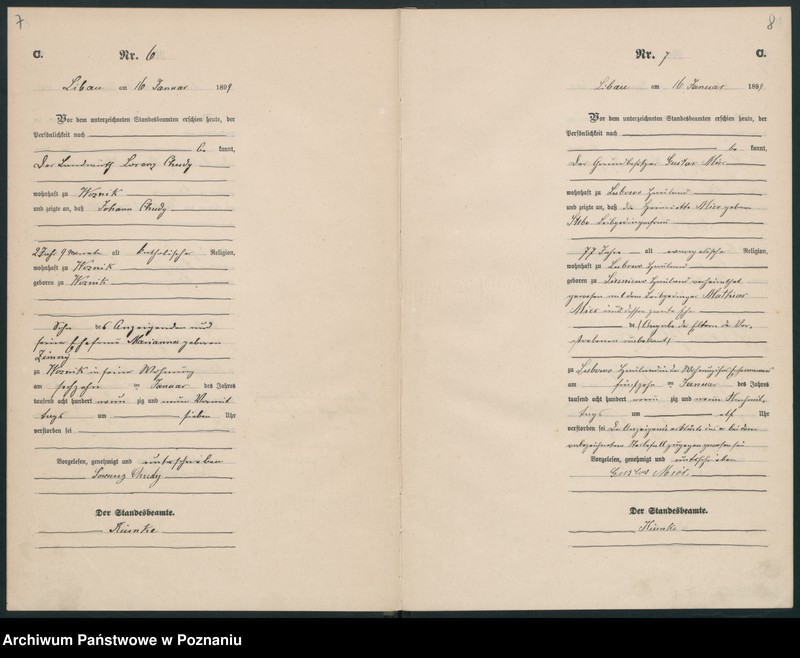 7
C.
Nr. 6
Libau am 16 Januar 1899
Vor dem unterzeichneten Standesbeamten erschien heute, der
Persönlichkeit nach
be kannt,
Der Landwirth Lorenz Chudy
wohnhaft zu Woznik
und zeigte an, daß Johann Chudy
2 Jahr 9 Monate alt katholischer Religion,
wohnhaft zu Woznik
geboren zu Woznik
Sohn des Anzeigenden und
seiner Ehefrau Marianna geboren
Zimny
zu Woznik in seiner Wohnung
am sechzehn ten Januar des Jahres
tausend acht hundert neun zig und neun Vormit
tags um sieben Uhr
verstorben sei
Vorgelesen, genehmigt und unterschrieben
Lorenz Chudy
Der Standesbeamte.
8
Nr. 7
C.
Libau am 16 Januar 1899
Vor dem unterzeichneten Standesbeamten erschien heute, der
Persönlichkeit nach
be kannt,
Der Grundbesitzer Gustav
wohnhaft zu Lubowo Hauland
und zeigte an, daß die Henriette geboren
77 Jahre alt evangelische Religion,
wohnhaft zu Lubowo Hauland
geboren zu Hauland verheirathet
gewesen mit dem Leibgedinger Mathias
und dessen zweite Ehe
de (Angabe der Eltern der Ver-
storbenen unbekannt)
zu Lubowo Hauland in der Wohnung ihres Ehemannes
am fünfzehn ten Januar des Jahres
tausend acht hundert neun zig und neun Nachmit-
tags um elf Uhr
verstorben sei Der Anzeigende erklärte daß er bei dem
vorbezeichneten Sterbefall zugegen gewesen sei
Vorgelesen, genehmigt und unterschrieben
Gustav
Der Standesbeamte.
Archiwum Państwowe w Poznaniu